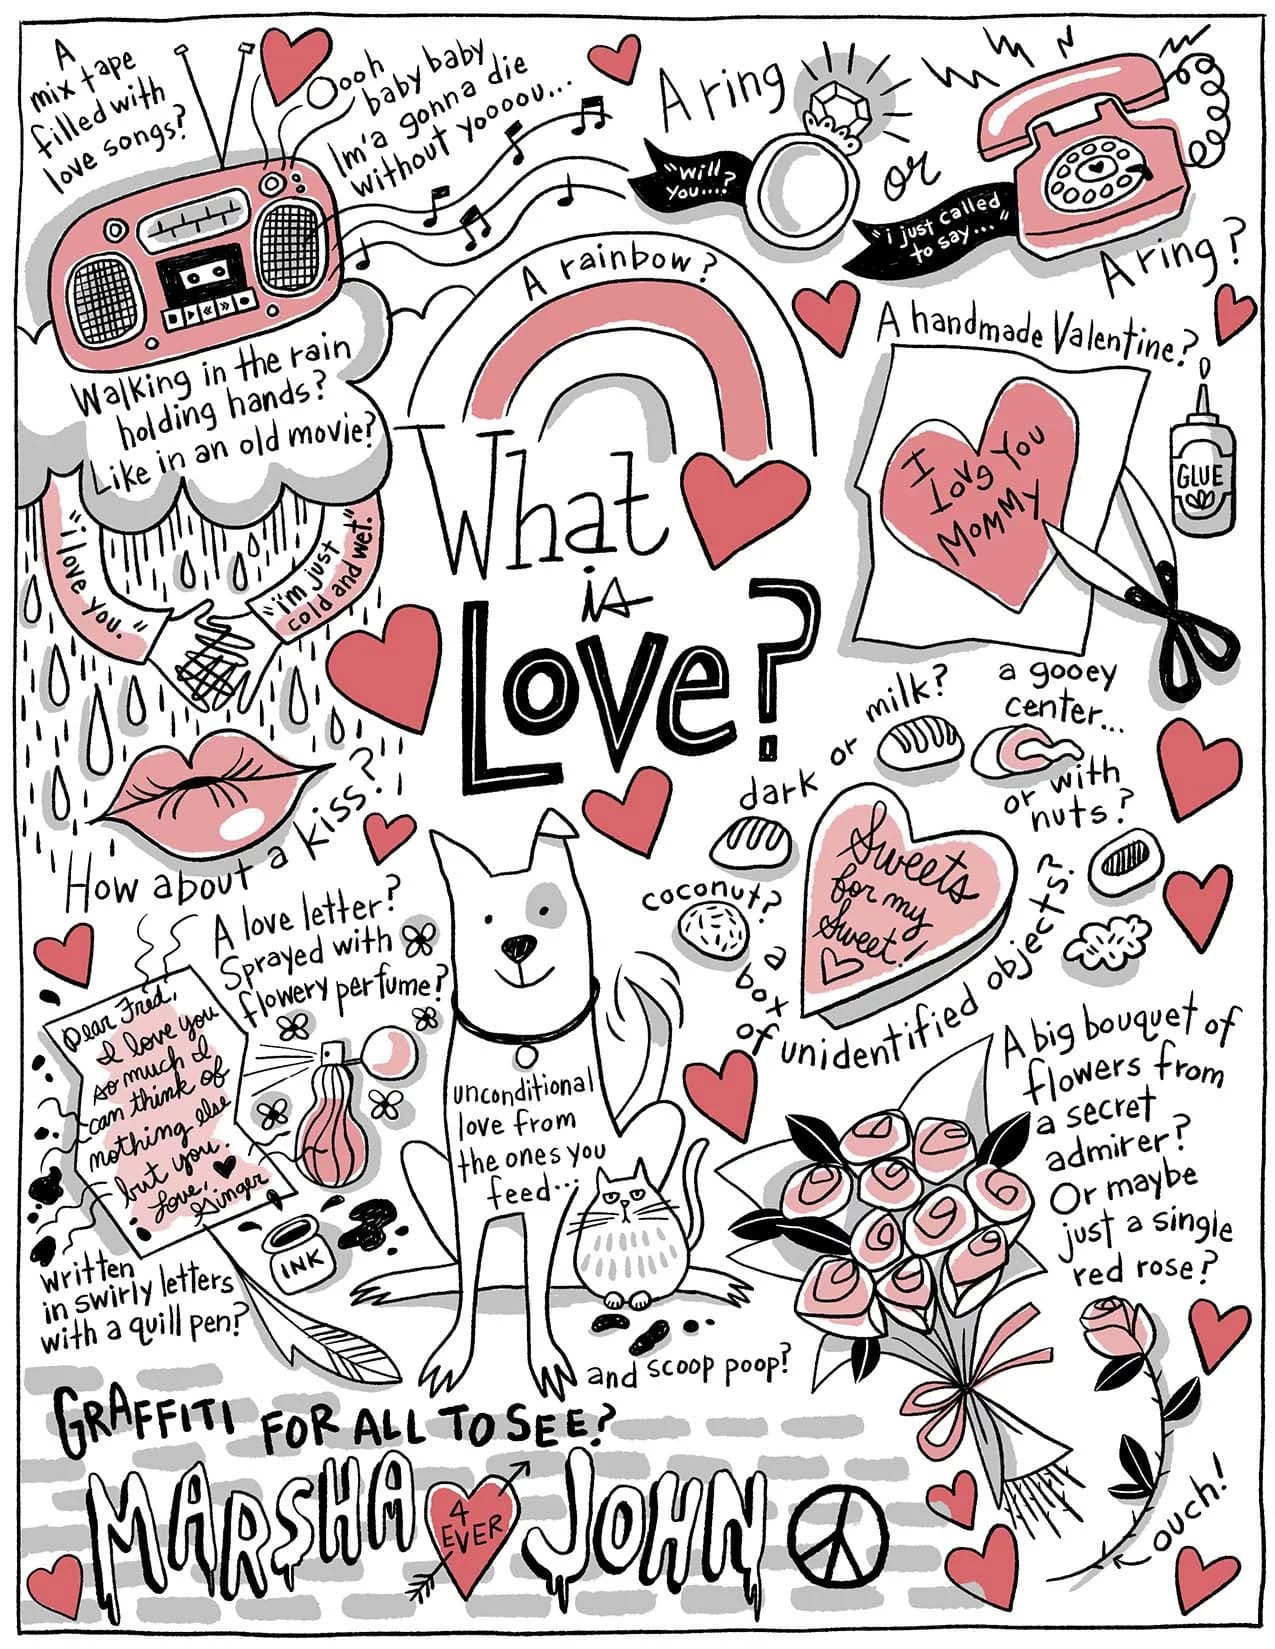 A
mix tape
filled with
love songs?
Oooh
baby baby
Im'a gonna die
without yoooou...
A ring
"will
you...?"
or
"i just called
to say..."
A ring?
A rainbow?
A handmade Valentine?
I
Love You
MOMMY
GLUE
Walking in the rain
holding hands?
Like in an old movie?
"i love you."
"i'm just
cold and wet."
What
is
Love?
How about a kiss?
milk?
or
dark
a gooey
center...
or with
nuts?
coconut?
Sweets
for my
Sweet!
a
box
of unidentified objects?
A love letter?
Sprayed with
flowery perfume?
Dear Fred,
I love you
so much I
can think of
nothing else
but you.
Love,
Ginger
INK
written
in swirly letters
with a quill pen?
unconditional
love from
the ones you
feed...
and scoop poop?
A big bouquet of
flowers from
a secret
admirer?
Or maybe
just a single
red rose?
ouch!
GRAFFITI FOR ALL TO SEE?
MARSHA
4
EVER
JOHN